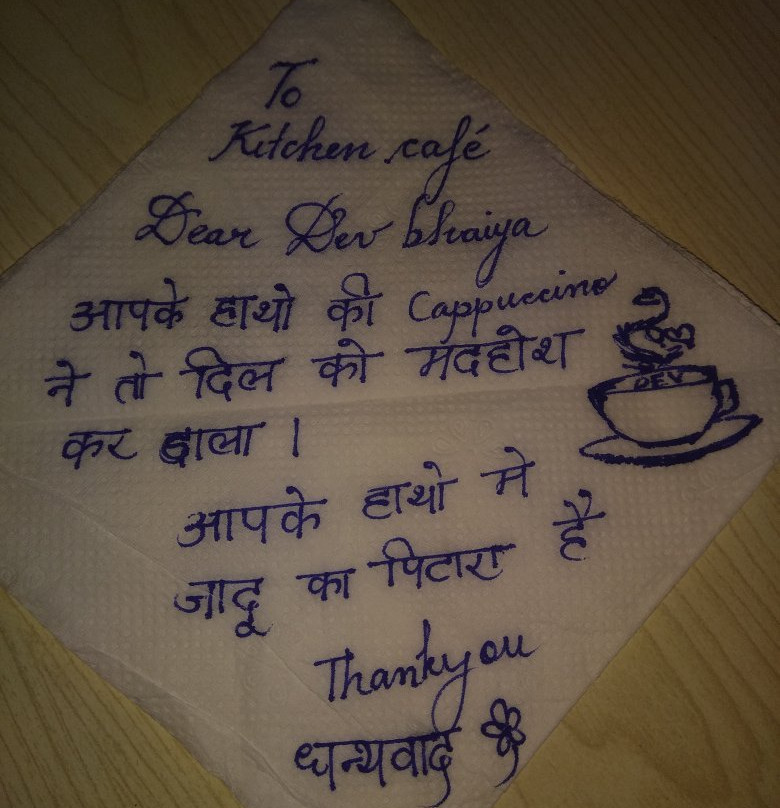 To
Kitchen café
Dear Dev bhaiya
आपके हाथो की Cappuccino
ने तो दिल को मदहोश
कर डाला ।
DEV
आपके हाथो मे
जादू का पिटारा है
Thankyou
धन्यवाद